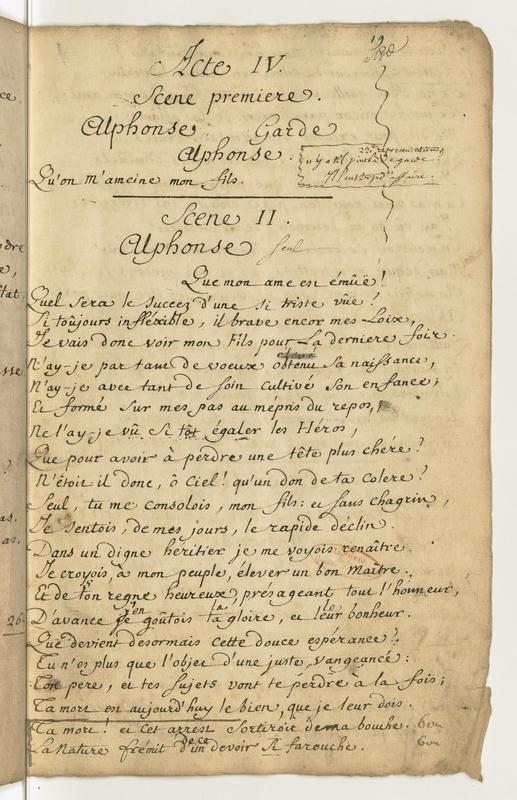 Acte IV.
Scene premiere.
Alphonse. Garde
Alphonse.
Qu'on m'ameine mon fils.
Scene II.
Alphonse seul
Que mon ame est émüe!
Quel sera le succez d'une si triste vüe?
Si toûjours infléxible, il brave encor mes Loix,
Je vais donc voir mon Fils pour La derniere fois.
N'ay-je par tant de voeux obtenu Sa naissance,
N'ay-je avec tant de soin cultivé Son enfance;
Et formé sur mes pas au mépris du repos,
Ne l'ay-je vû si tôt égaler les Héros,
Que pour avoir à perdre une tête plus chére?
N'étoit il donc, ô Ciel! qu'un don de ta colere?
Seul, tu me consolois, mon fils: et sans chagrin,
Je sentois, de mes jours, le rapide déclin.
Dans un digne heritier je me voyois renaître.
Je croyois, à mon peuple, élever un bon Maître.
Et de ton regne heureux, présageant tout l'honneur,
j'en la le
D'avance je goûtois ta gloire, et leur bonheur.
Que devient desormais cette douce esperance?
Tu n'es plus que l'objet d'une juste vangeance:
Ton pere, et tes sujets vont te perdre à la fois;
Ta mort est aujourd'huy le bien, que je leur dois.
Ta mort! et cet arrest sortiroit de ma bouche. bon
de ce
La Nature frémit d'un devoir si farouche. bon
26